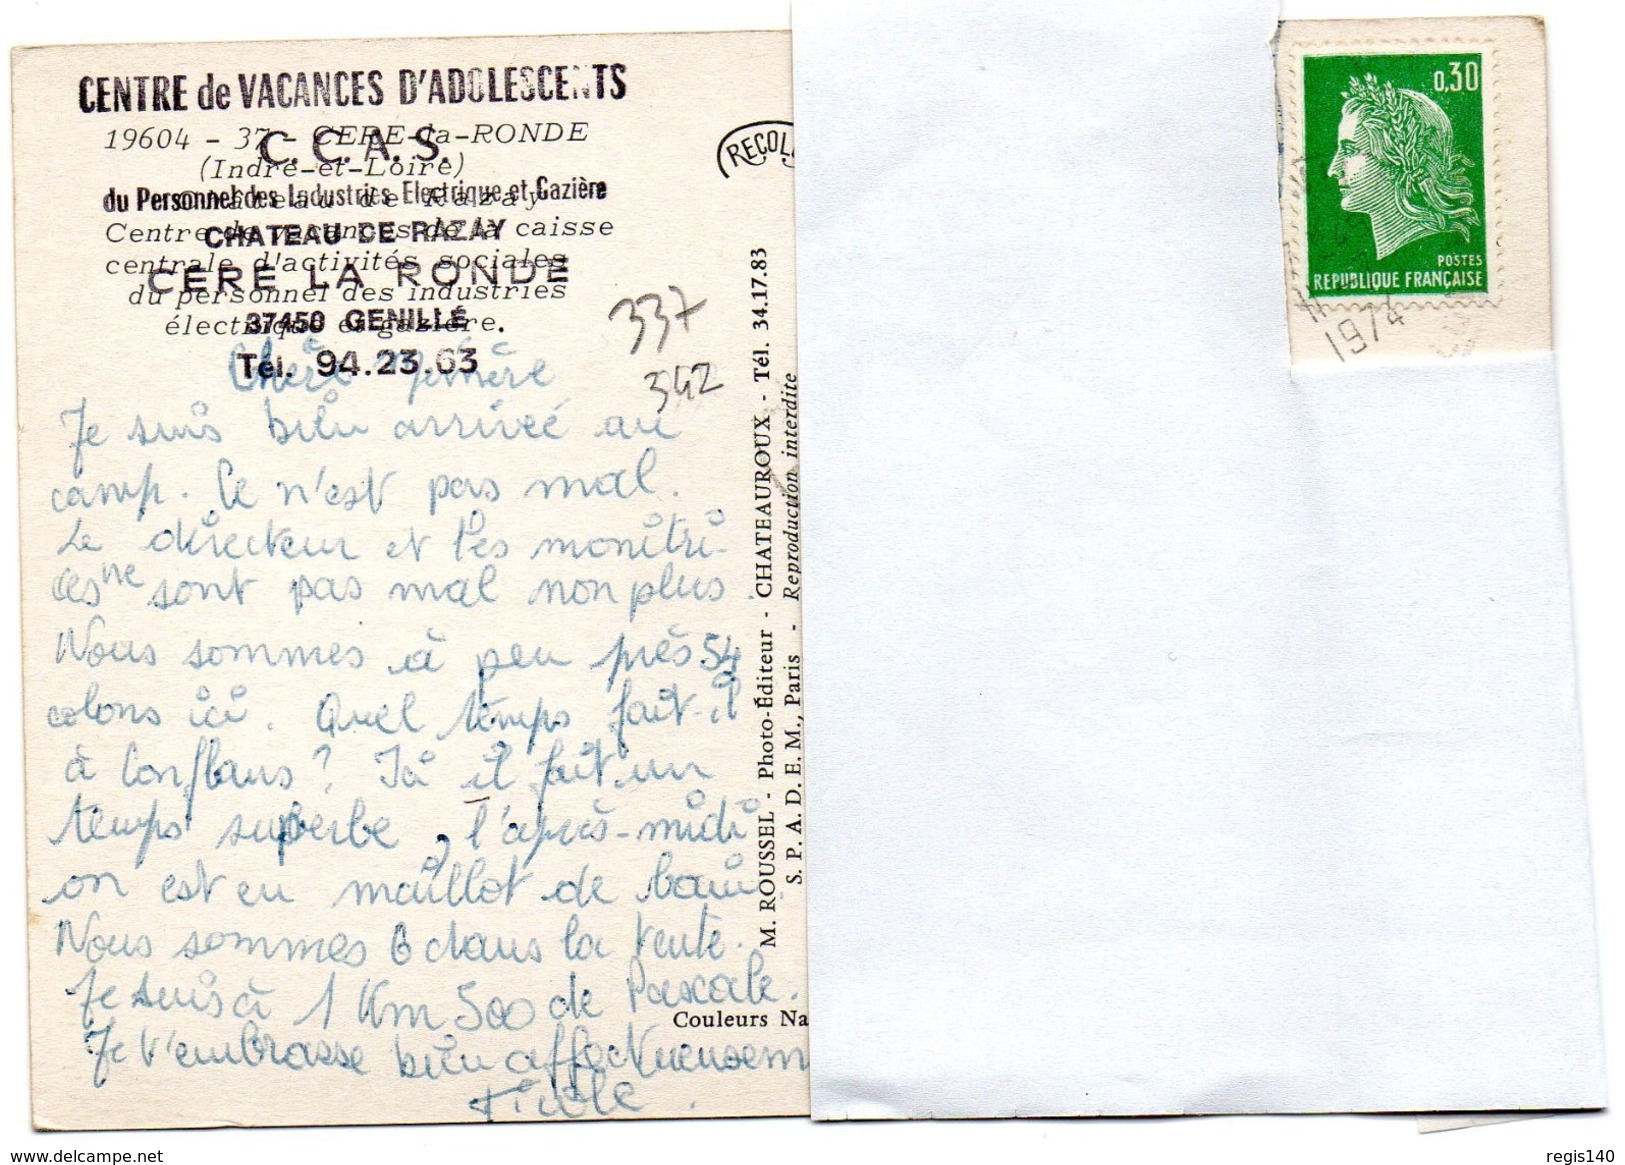 CENTRE de VACANCES D'ADOLESCENTS
19604 - 37 - CERE-la-RONDE
C.C.A.S.
(Indre-et-Loire)
du Personnel des Industries Electrique et Gazière
Château de Razay
CHATEAU DE RAZAY
Centre de vacances de la caisse
centrale d'activités sociales
CERE LA RONDE
du personnel des industries
37450 GENILLÉ
électrique et gazière.
Tél. 94.23.63
337
342
Chère Mémère
Je suis bien arrivée au
camp. Ce n'est pas mal.
Le directeur et les monitri-
ces ne sont pas mal non plus.
Nous sommes à peu près 54
colons ici. Quel temps fait-il
à Conflans? Ici il fait un
temps superbe, l'après-midi
on est en maillot de bain
Nous sommes 6 dans la tente.
Je suis à 1 Km 500 de Pascale.
Je t'embrasse bien affectueusem
RECOL
M. ROUSSEL - Photo-Éditeur - CHATEAUROUX - Tél. 34.17.83
S. P. A. D. E. M., Paris - Reproduction interdite
Couleurs Na
0,30
POSTES
REPUBLIQUE FRANÇAISE
1974
www.delcampe.net
regis140